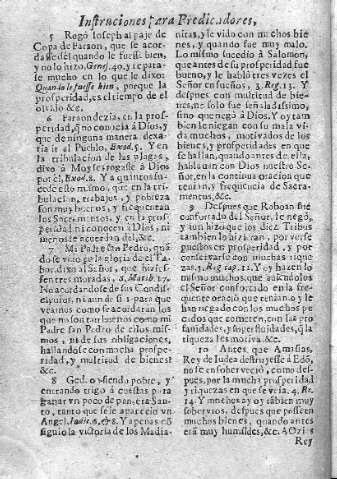 Instruciones para Predicadores,
5 Rogò Ioseph al paje de
Copa de Faraon, que se acor-
dasse del quando le fuesse bien,
y no lo hizo, Genes. 40. y repara-
se mucho en lo que le dixo:
Quando te fuesse bien, porque la
prosperidad, es el tiempo de el
olvido &c.
6 Faraon dezia, en la pros-
peridad, que no conocia à Dios, y
que de ninguna manera dexa-
ria ir al Pueblo, Exod. 5. Y en
la tribulacion de las plagas,
dixo à Moyses rogasse à Dios
por el, Exod. 8. Y a quantos su-
cede esto mismo, que en la tri-
bulacion, trabajos, y pobreza
son muy buenos, y frequentan
los Sacramentos, y en la prosp-
peridad ni conocen à Dios, ni
quieren acordarse del, &c.
7 Mi Padre San Pedro, quã-
do se viò en la gloria de el Ta-
bor, dixo al Señor, que hiziesse
en tres moradas,
No acordandose de sus Condis-
cipulos, ni aun de si: para que
veamos como se acuidaran los
que no son tan buenos como mi
Padre San Pedro de ellos mis-
mos, ni de sus obligaciones,
hallandose con mucha prospe-
ridad, y multitud de bienes
&c.
8 Gedeon siendo pobre, y
entrando trigo à cuestas para
ganar un poco de pan, era San-
to, tanto que se le apareciò un
Angel. Iudic. 6. & 8. Y apenas cõ
siguio la victoria de los Madia-
nitas, y le vido con muchos bie-
nes, y quando fue muy malo.
Lo mismo sucediò à Salomon,
que antes de su prosperidad fue
bueno, y le hablò tres vezes el
Señor en sueños, 3. Reg. 13. Y
despues con multitud de bie-
nes, no solo fue señaladissimo,
sino que negò à Dios. Y oy tam
bien le niegan con su mala vi-
da muchos, motivados de los
bienes, y prosperidades en que
se hallan, quando antes de ella,
hablavan con Dios nuestro Se-
ñor, en la continua oracion que
tenian, y frequencia de Sacra-
mentos, &c.
9 Despues que Roboan fue
confortado del Señor, le negò,
y aun hizo que los diez Tribus
tambien lo hizieran, por verse
puestos en prosperidad, y por
conservarse con muchas rique-
zas, 3. Reg. 12. Y oy hazen lo
mismo muchos, que aviendolos
el Señor confortado en la fre-
quente oracion que tenian, o le
han negado con los muchos pe-
cados que cometen, con las pro
fanidades, y superfluidades, q̃ la
riqueza les motiva &c.
10 Antes que Amasias,
Rey de Iudea destruyesse à Edõ,
no se ensoberveciò, como des-
pues, por la mucha prosperidad
y riquezas en que se vìa, 4. Re.
14. Y muchos ay oy tambien muy
sobervios, despues que posseen
muchos bienes, quando antes
eran muy humildes, &c. A Ozias
Rey